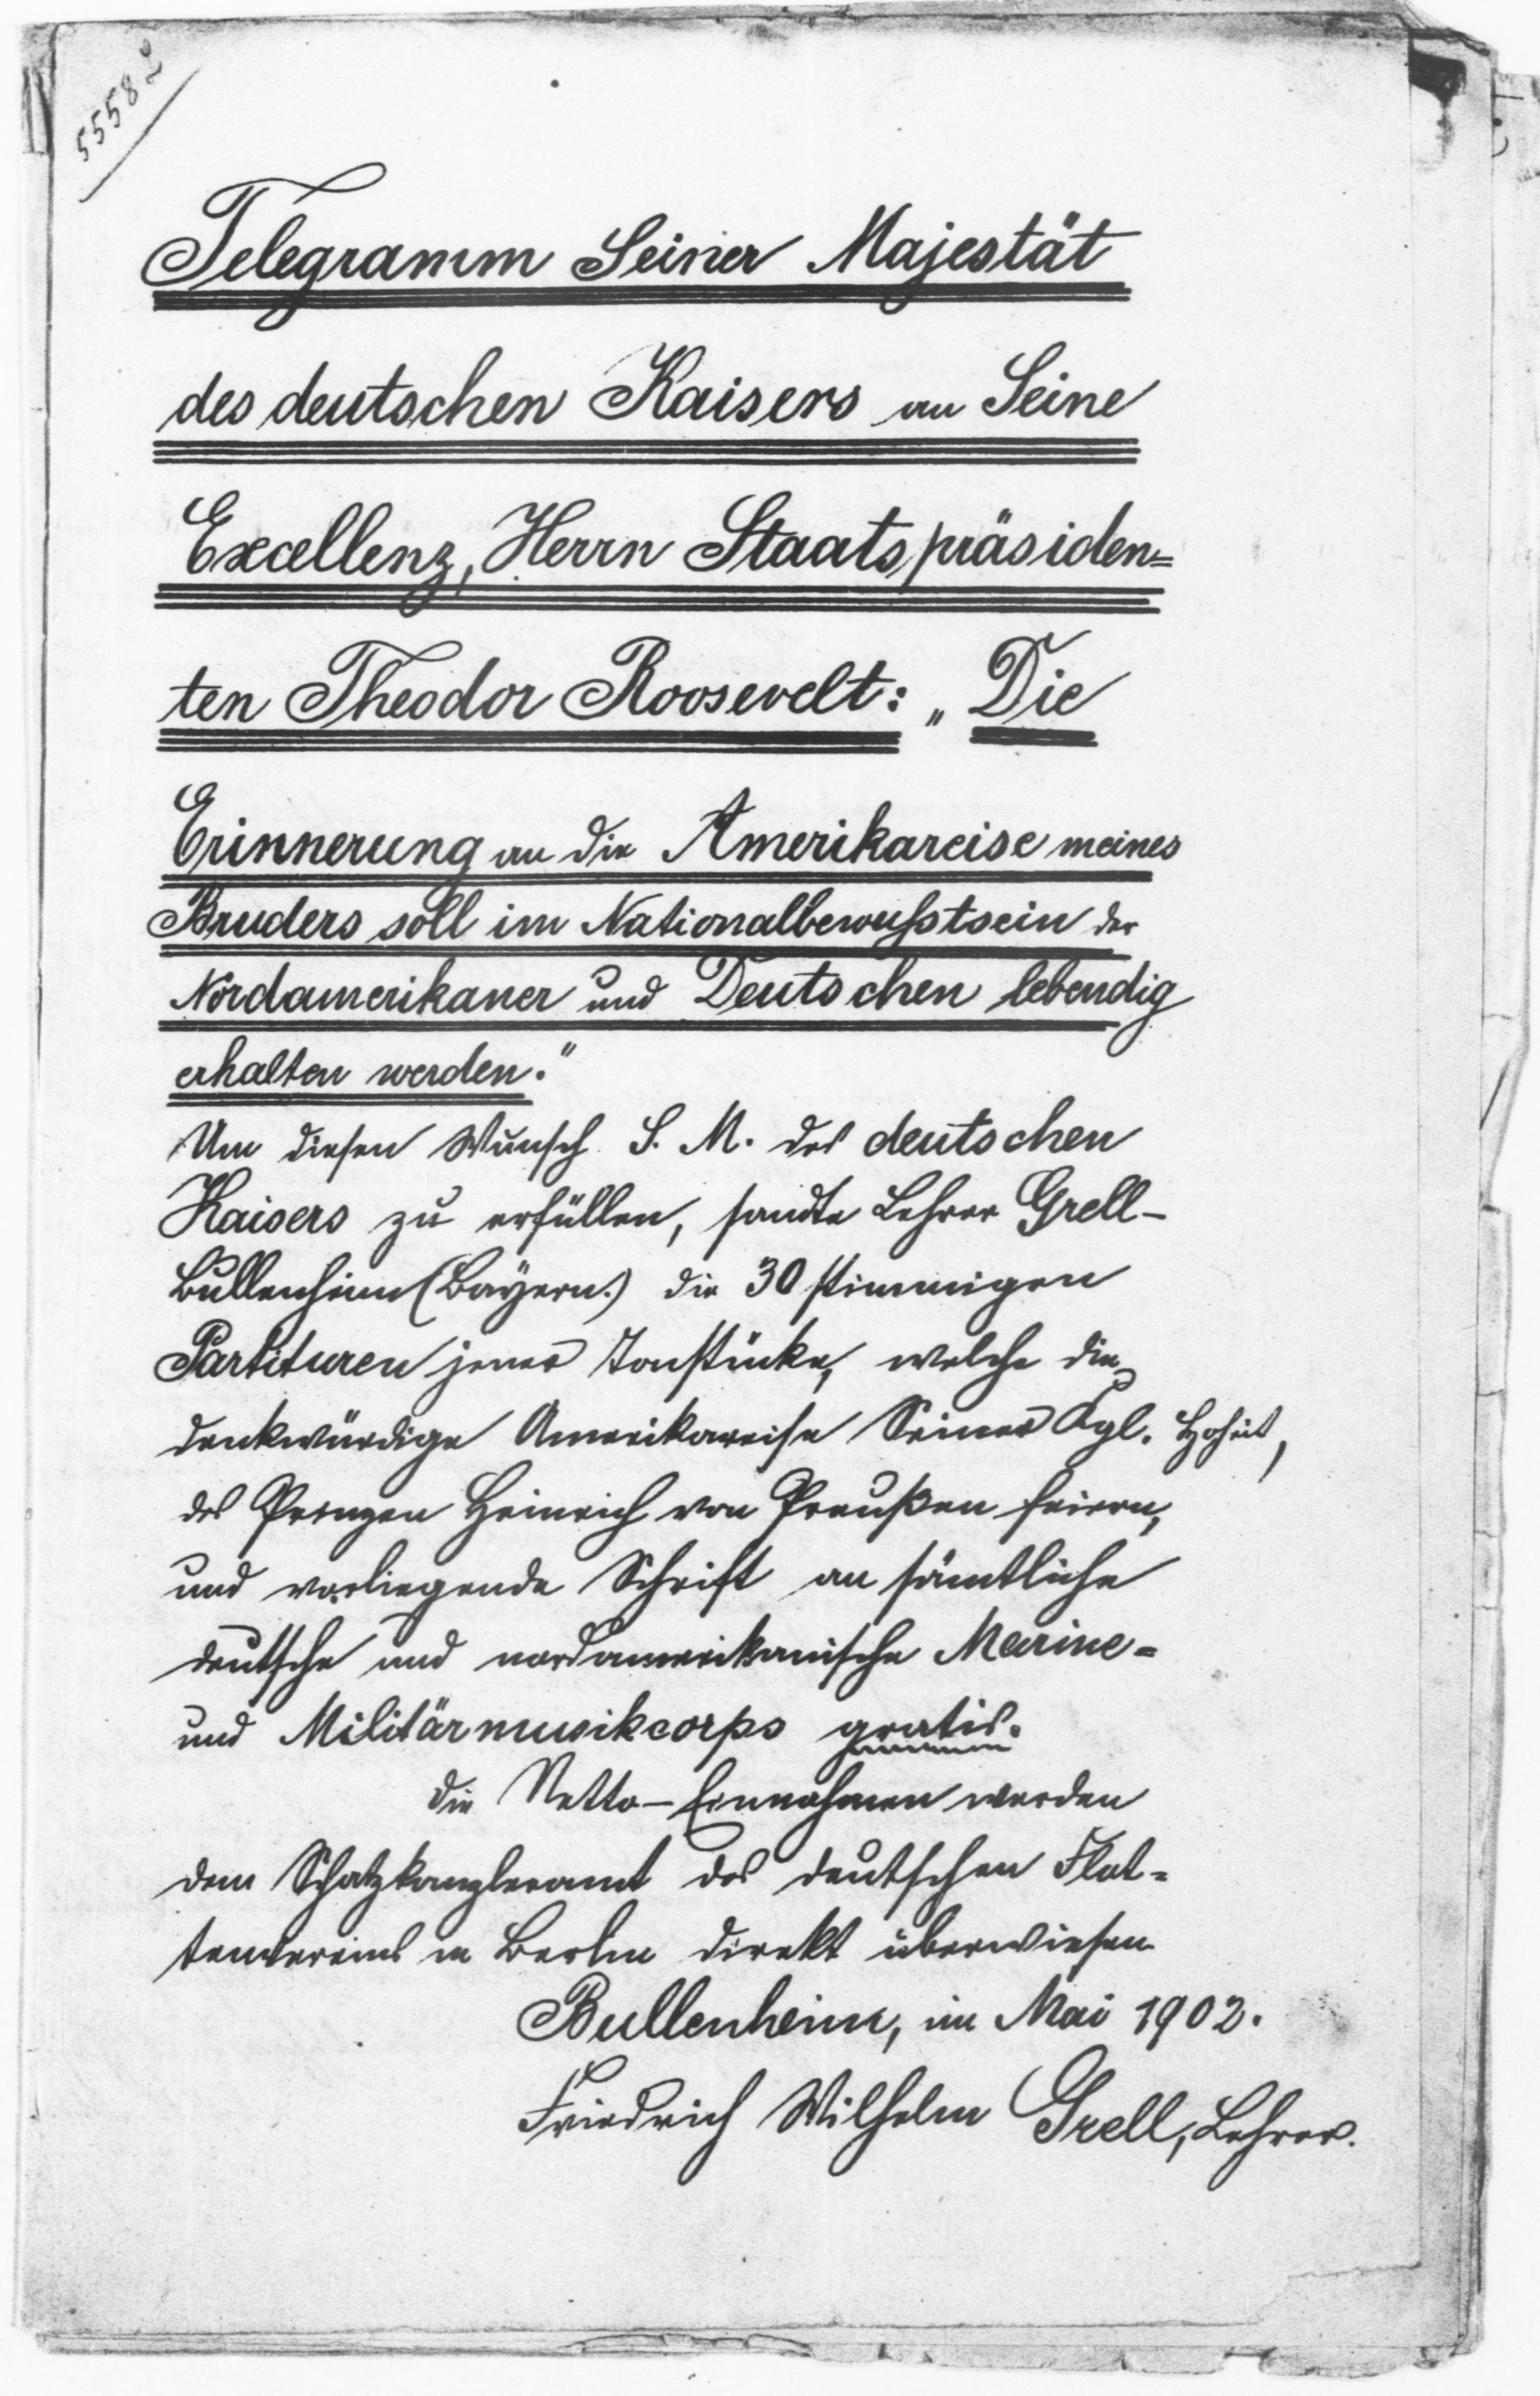 55582
Telegramm Seiner Majestät
des deutschen Kaisers an Seine
Excellenz, Herrn Staatspräsiden=
ten Theodor Roosevelt: „Die
Erinnerung an die Amerikareise meines
Bruders soll im Nationalbewußtsein der
Nordamerikaner und Deutschen lebendig
erhalten werden."
Um diesen Wunsch S. M. des deutschen
Kaisers zu erfüllen, sandte Lehrer Grell-
Bullenheim (Bayern.) die 30 stimmigen
Partituren jener Tonstücke, welche die
denkwürdige Amerikareise Seiner Kgl. Hoheit,
des Prinzen Heinrich von Preußen feiern,
und vorliegende Schrift an sämtliche
deutsche und nordamerikanische Marine=
und Militärmusikcorps gratis.
Die Netto-Einnahmen werden
dem Schatzkanzleramt des deutschen Flot=
tenvereins in Berlin direkt überwiesen
Bullenheim, im Mai 1902.
Friedrich Wilhelm Grell, Lehrer.